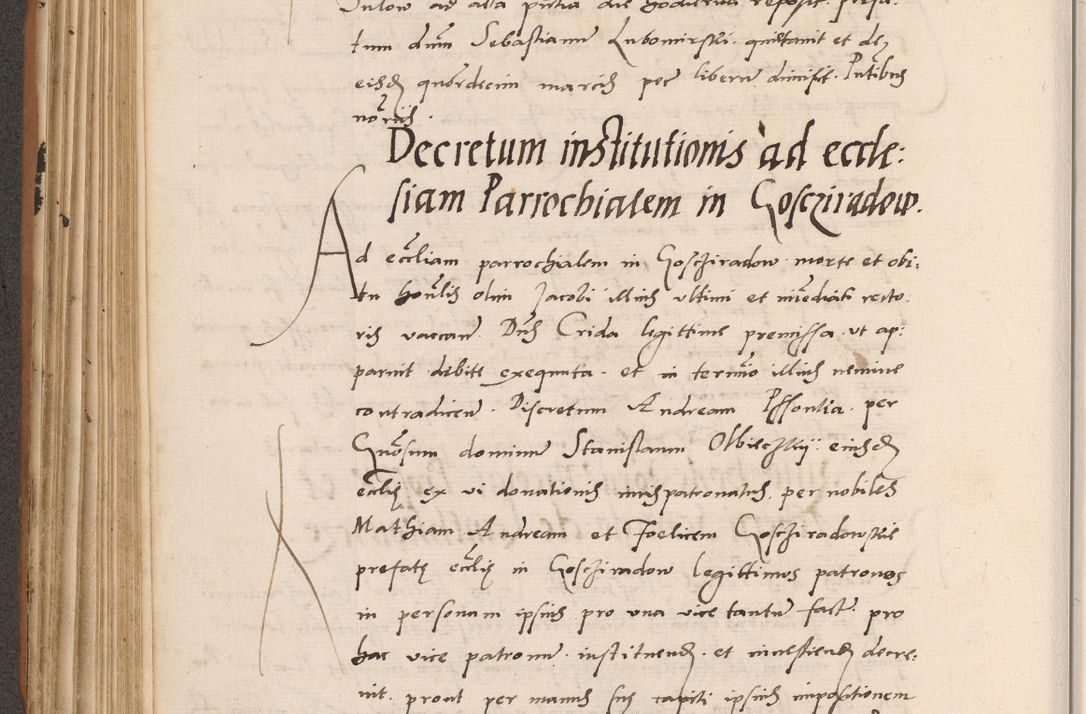 tum dnm Sebastianu Lubomirski quittauit et de
eisd quordecim marcis per liberu dimisit. Pntibus
Decretum institutionis ad eccle:
siam Parrochialem in Gosczÿradow.
Ad eccliam parrochialem in Goscziradow morte et obi:
tu honlis olim Jacobi illius vltimi et imediati recto
ris vacan. Crida legittime premissa vt ap:
paruit debite exequuta. et in termio illius nemine
contradicen. Discretum Andream per
Gnosum dominu Stanislaum eiusd
ecclie ex vi donationis iurispatronatus per nobiles
Mathiam Andream et Foelicem Goscziradowskie
prefate ecclie in Goscziradow legittimos patronos
in personam ipsius pro vna vice tantu fact pro
hac vice patronu. instituend et inuestiend decre:
uit. prout per manus sue capiti ipsius impositionem